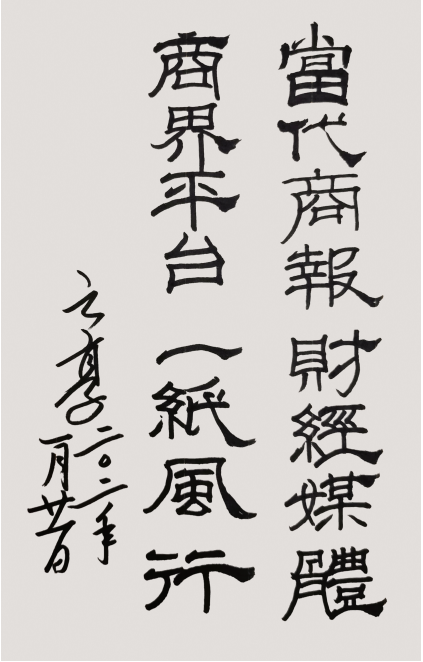 當代商報 財經媒體
商界平台 一紙風行
之
二〇二年
一月廿日